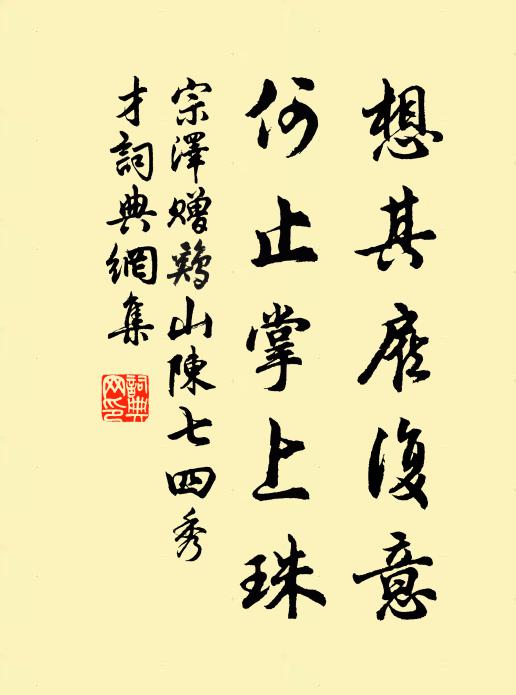 想其顧復意
何止掌上珠
宗澤贈鷄山陳七四秀
才詞典網集
詞典
网印